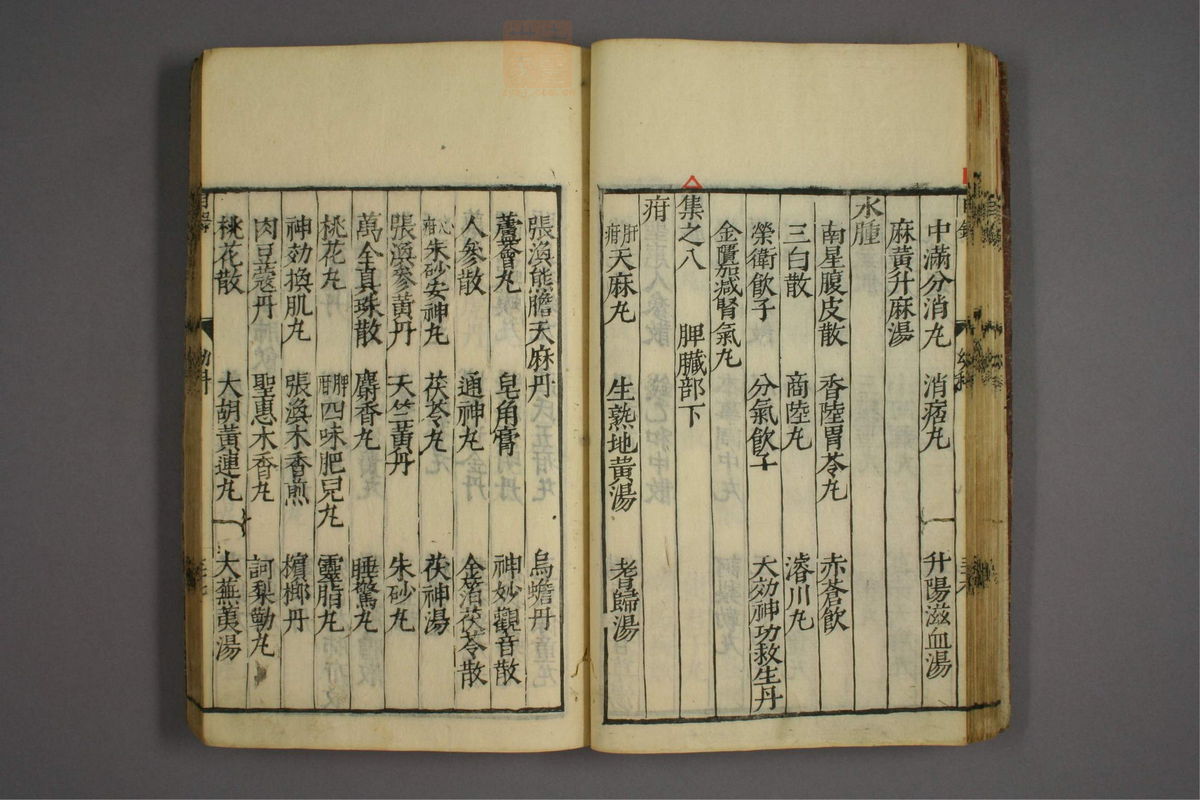 中滿分消丸　消痞丸　升陽滋血湯
麻黃升麻湯
水腫
南星腹皮散　香陸胃苓丸　赤苍飲
三白散　商陸丸　濬川丸
榮衛飲子　分氣飲子　大効神功救生丹
金匱加减腎氣丸
集之八　脾臟部下
疳
肝疳天麻丸　生熟地黃湯　耆歸湯
張渙熊膽天麻丹　烏蟾丹
蘆薈丸　皂角膏　神妙觀音散
人參散　通神丸　金箔茯苓散
心疳朱砂安神丸　茯苓丸　茯神湯
張渙參黃丹　天竺黃丹　朱砂丸
萬全真珠散　麝香丸　睡驚丸
桃花丸　脾疳四味肥兒丸　靈脂丸
神効換肌丸　張渙木香煎　檳榔丹
肉豆蔻丹　聖惠木香丸　訶梨勒丸
桃花散　大胡黃連丸　大蕪荑湯